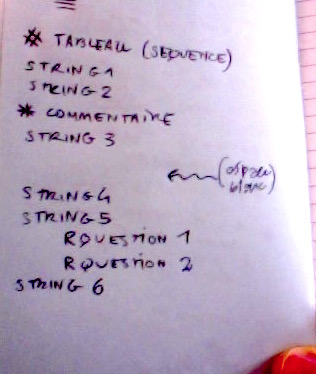 * TABLEAU (SEQUENCE)
STRING 1
STRING 2
* COMMENTAIRE
STRING 3
(espace
blanc)
STRING 4
STRING 5
RQUESTION 1
RQUESTION 2
STRING 6